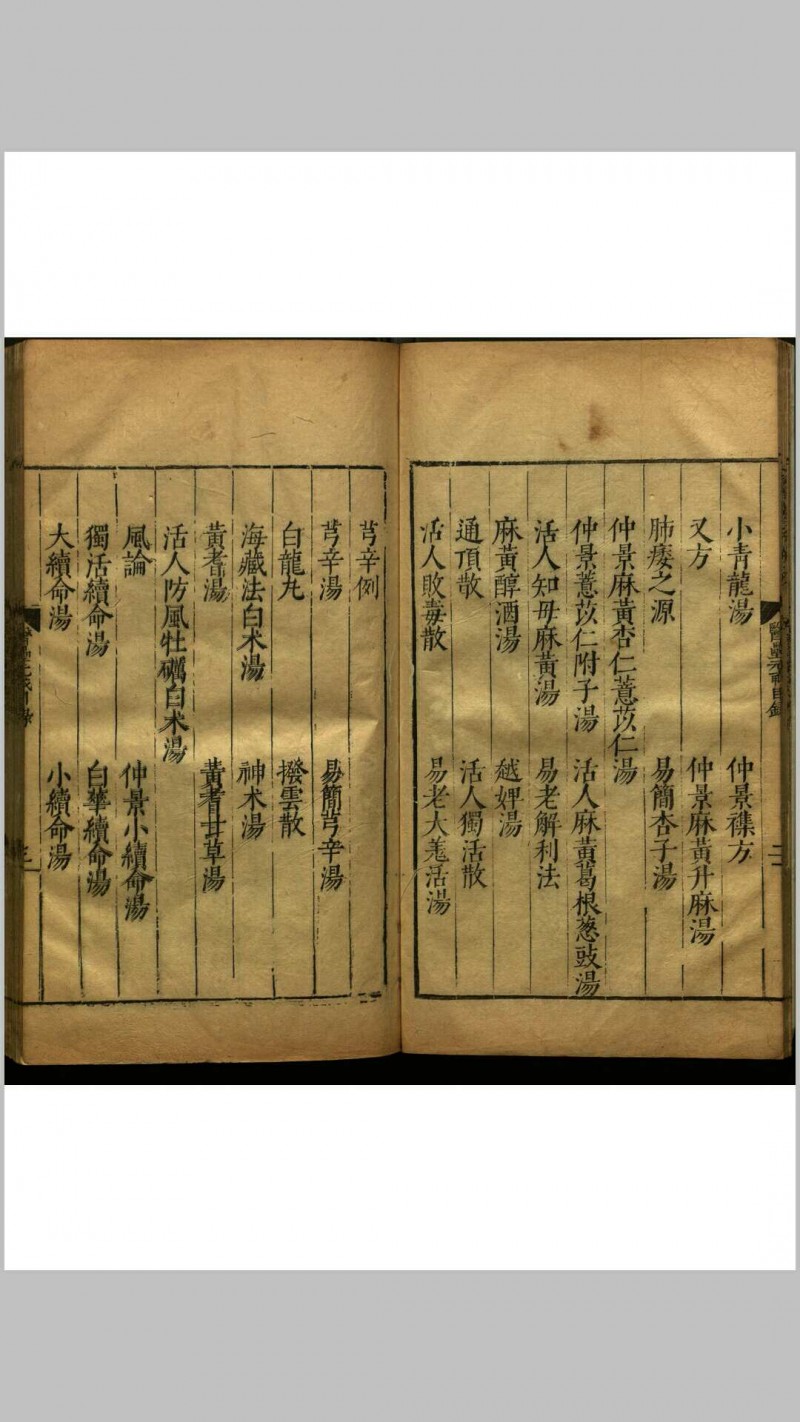 小青龍湯 仲景襍方
又方 仲景麻黃升麻湯
肺痿之源 易簡杏子湯
仲景麻黃杏仁薏苡仁湯
仲景薏苡仁附子湯 活人麻黃葛根葱豉湯
活人知母麻黃湯 易老解利法
麻黃醇酒湯 越婢湯
通頂散 活人獨活散
活人敗毒散 易老大羗活湯
芎辛例
芎辛湯 易簡芎辛湯
白龍丸 撥雲散
海藏法白术湯 神术湯
黃耆湯 黃耆甘草湯
活人防風牡礪白术湯
風論 仲景小續命湯
獨活續命湯 白華續命湯
大續命湯 小續命湯